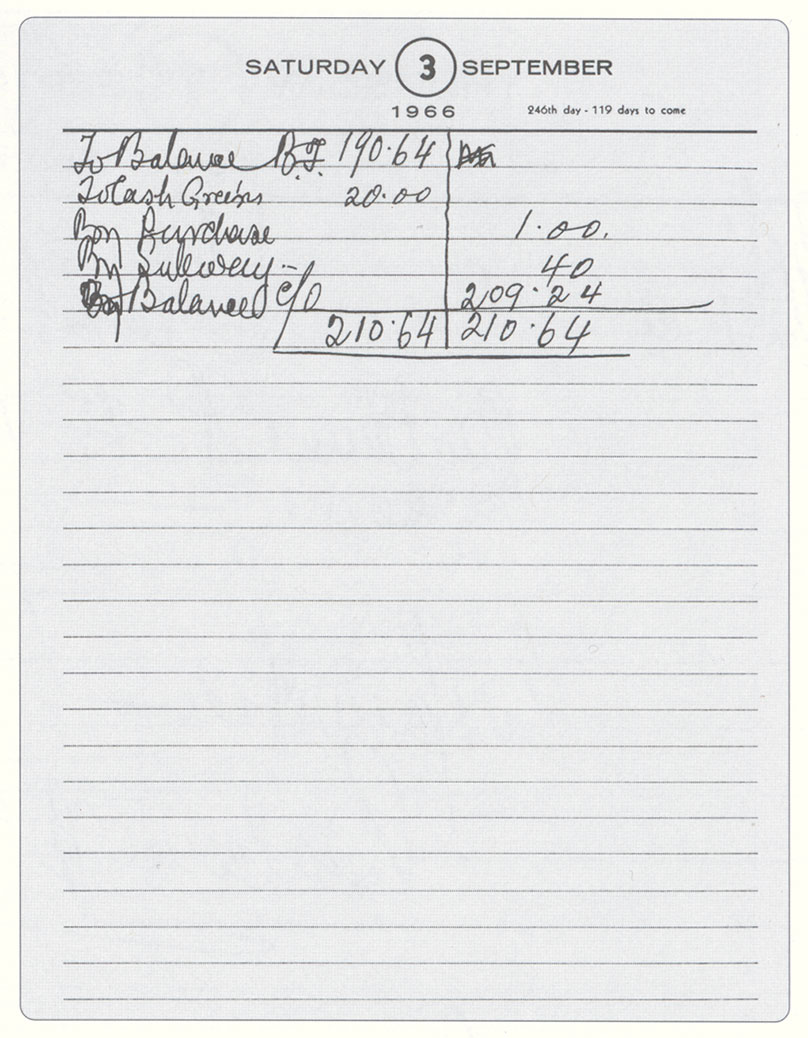 SATURDAY 3 SEPTEMBER
1966 246th day - 119 days to come
To Balance B.F. 190.64
To Cash 20.00
By Purchase 1.00.
By Subway - 40
By Balance c/o 209.24
210.64 210.64